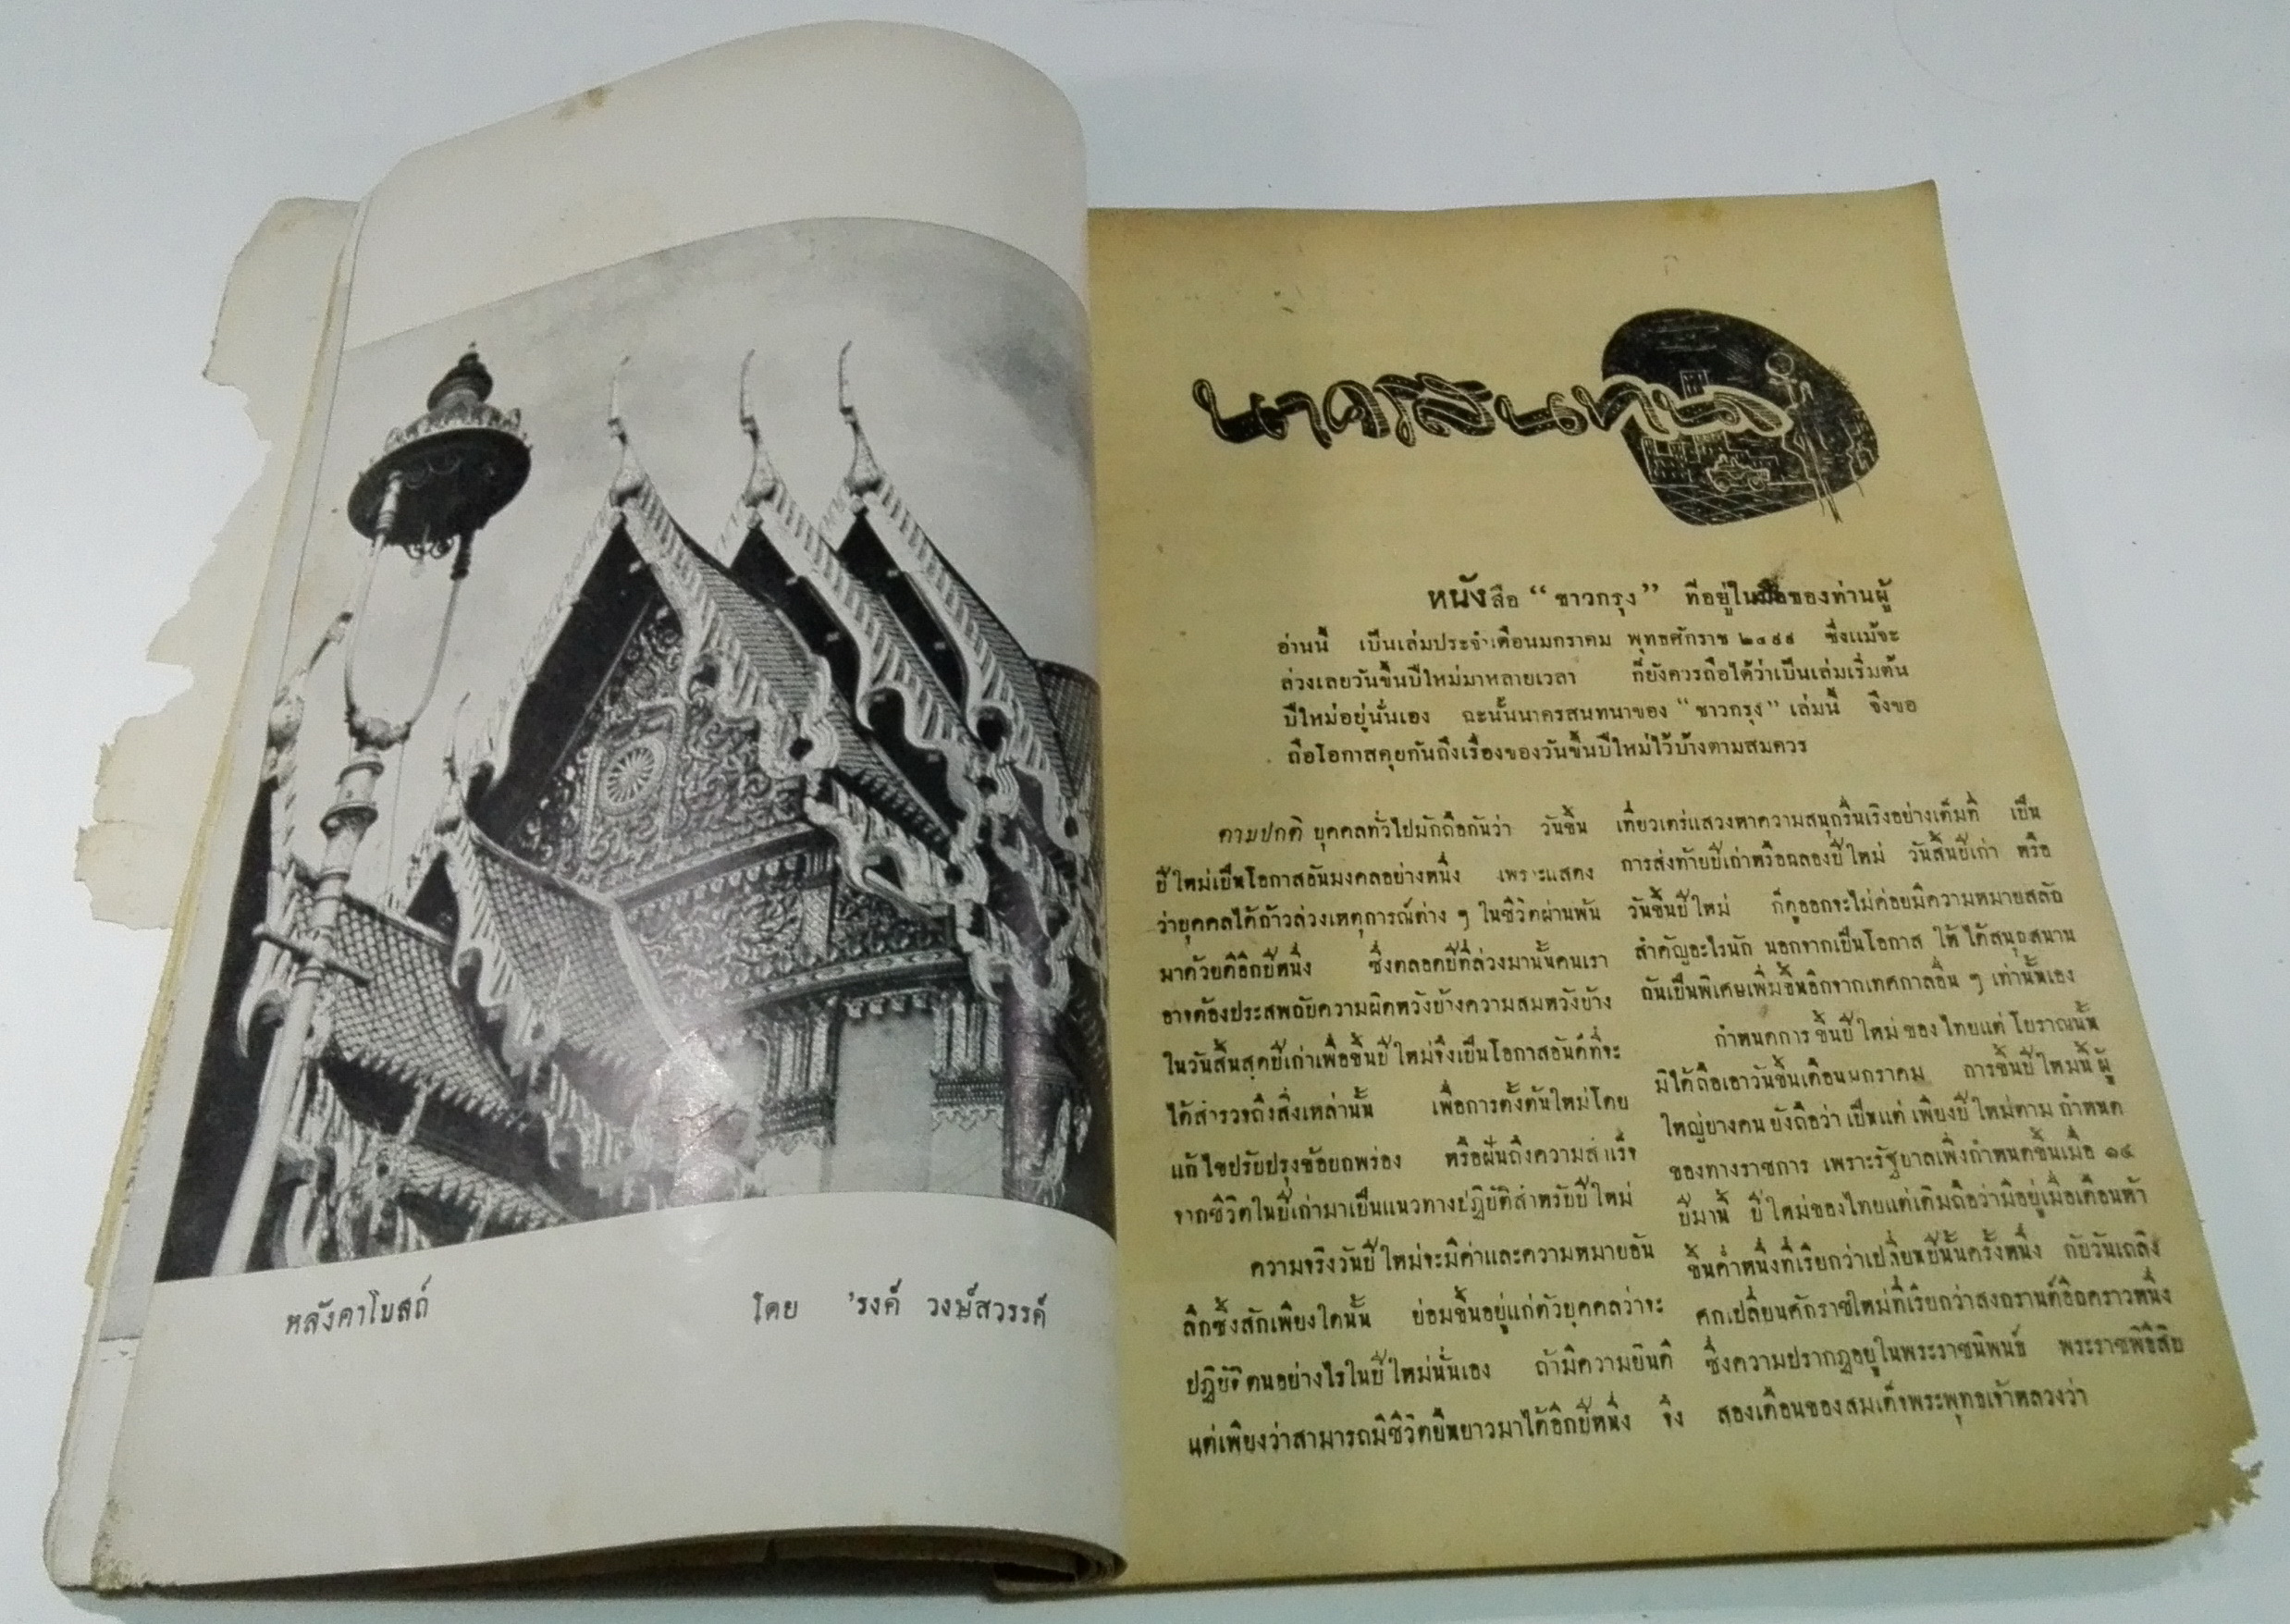 หลังคาโบสถ์
โดย 'รงค์ วงษ์สวรรค์
นาครสนทนา
หนังสือ “ชาวกรุง” ที่อยู่ในมือของท่านผู้
อ่านนี้ เป็นเล่มประจำเดือนมกราคม พุทธศักราช ๒๔๙๙ ซึ่งแม้จะ
ล่วงเลยวันขึ้นปีใหม่มาหลายเวลา ก็ยังควรถือได้ว่าเป็นเล่มเริ่มต้น
ปีใหม่อยู่นั่นเอง ฉะนั้นนาครสนทนาของ “ชาวกรุง” เล่มนี้ จึงขอ
ถือโอกาสคุยกันถึงเรื่องของวันขึ้นปีใหม่ไว้บ้างตามสมควร
ตามปกติ บุคคลทั่วไปมักถือกันว่า วันขึ้น
ปีใหม่เป็นโอกาสอันมงคลอย่างหนึ่ง เพราะแสดง
ว่าบุคคลได้ก้าวล่วงเหตุการณ์ต่าง ๆ ในชีวิตผ่านพ้น
มาด้วยดีอีกปีหนึ่ง ซึ่งตลอดปีที่ล่วงมานั้นคนเรา
อาจต้องประสพกับความผิดหวังบ้างความสมหวังบ้าง
ในวันสิ้นสุดปีเก่าเพื่อขึ้นปีใหม่จึงเป็นโอกาสอันดีที่จะ
ได้สำรวจถึงสิ่งเหล่านั้น เพื่อการตั้งต้นใหม่โดย
แก้ไขปรับปรุงข้อบกพร่อง หรือฝันถึงความสำเร็จ
จากชีวิตในปีเก่ามาเป็นแนวทางปฏิบัติสำหรับปีใหม่
ความจริงวันปีใหม่จะมีค่าและความหมายอัน
ลึกซึ้งสักเพียงใดนั้น ย่อมขึ้นอยู่แก่ตัวบุคคลว่าจะ
ปฏิบัติตนอย่างไรในปีใหม่นั่นเอง ถ้ามีความยินดี
แต่เพียงว่าสามารถมีชีวิตยืนยาวมาได้อีกปีหนึ่ง จึง
เที่ยวเตร่แสวงหาความสนุกรื่นเริงอย่างเต็มที่ เป็น
การส่งท้ายปีเก่าหรือฉลองปีใหม่ วันสิ้นปีเก่า หรือ
วันขึ้นปีใหม่ ก็ดูออกจะไม่ค่อยมีความหมายสลัก
สำคัญอะไรนัก นอกจากเป็นโอกาส ให้ได้สนุกสนาน
กันเป็นพิเศษเพิ่มขึ้นอีกจากเทศกาลอื่น ๆ เท่านั้นเอง
กำหนดการขึ้นปีใหม่ของไทยแต่โบราณนั้น
มิได้ถือเอาวันขึ้นเดือนมกราคม การขึ้นปีใหม่นี้ผู้
ใหญ่บางคนยังถือว่าเป็นแต่เพียงปีใหม่ตามกำหนด
ของทางราชการ เพราะรัฐบาลเพิ่งกำหนดขึ้นเมื่อ ๑๔
ปีมานี้ ปีใหม่ของไทยแต่เดิมถือว่ามีอยู่เมื่อเดือนห้า
ขึ้นค่ำหนึ่งที่เรียกว่าเปลี่ยนปีนั้นครั้งหนึ่ง กับวันเถลิง
ศกเปลี่ยนศักราชใหม่ที่เรียกว่าสงกรานต์อีกคราวหนึ่ง
ซึ่งความปรากฏอยู่ในพระราชนิพนธ์ พระราชพิธีสิบ
สองเดือนของสมเด็จพระพุทธเจ้าหลวงว่า